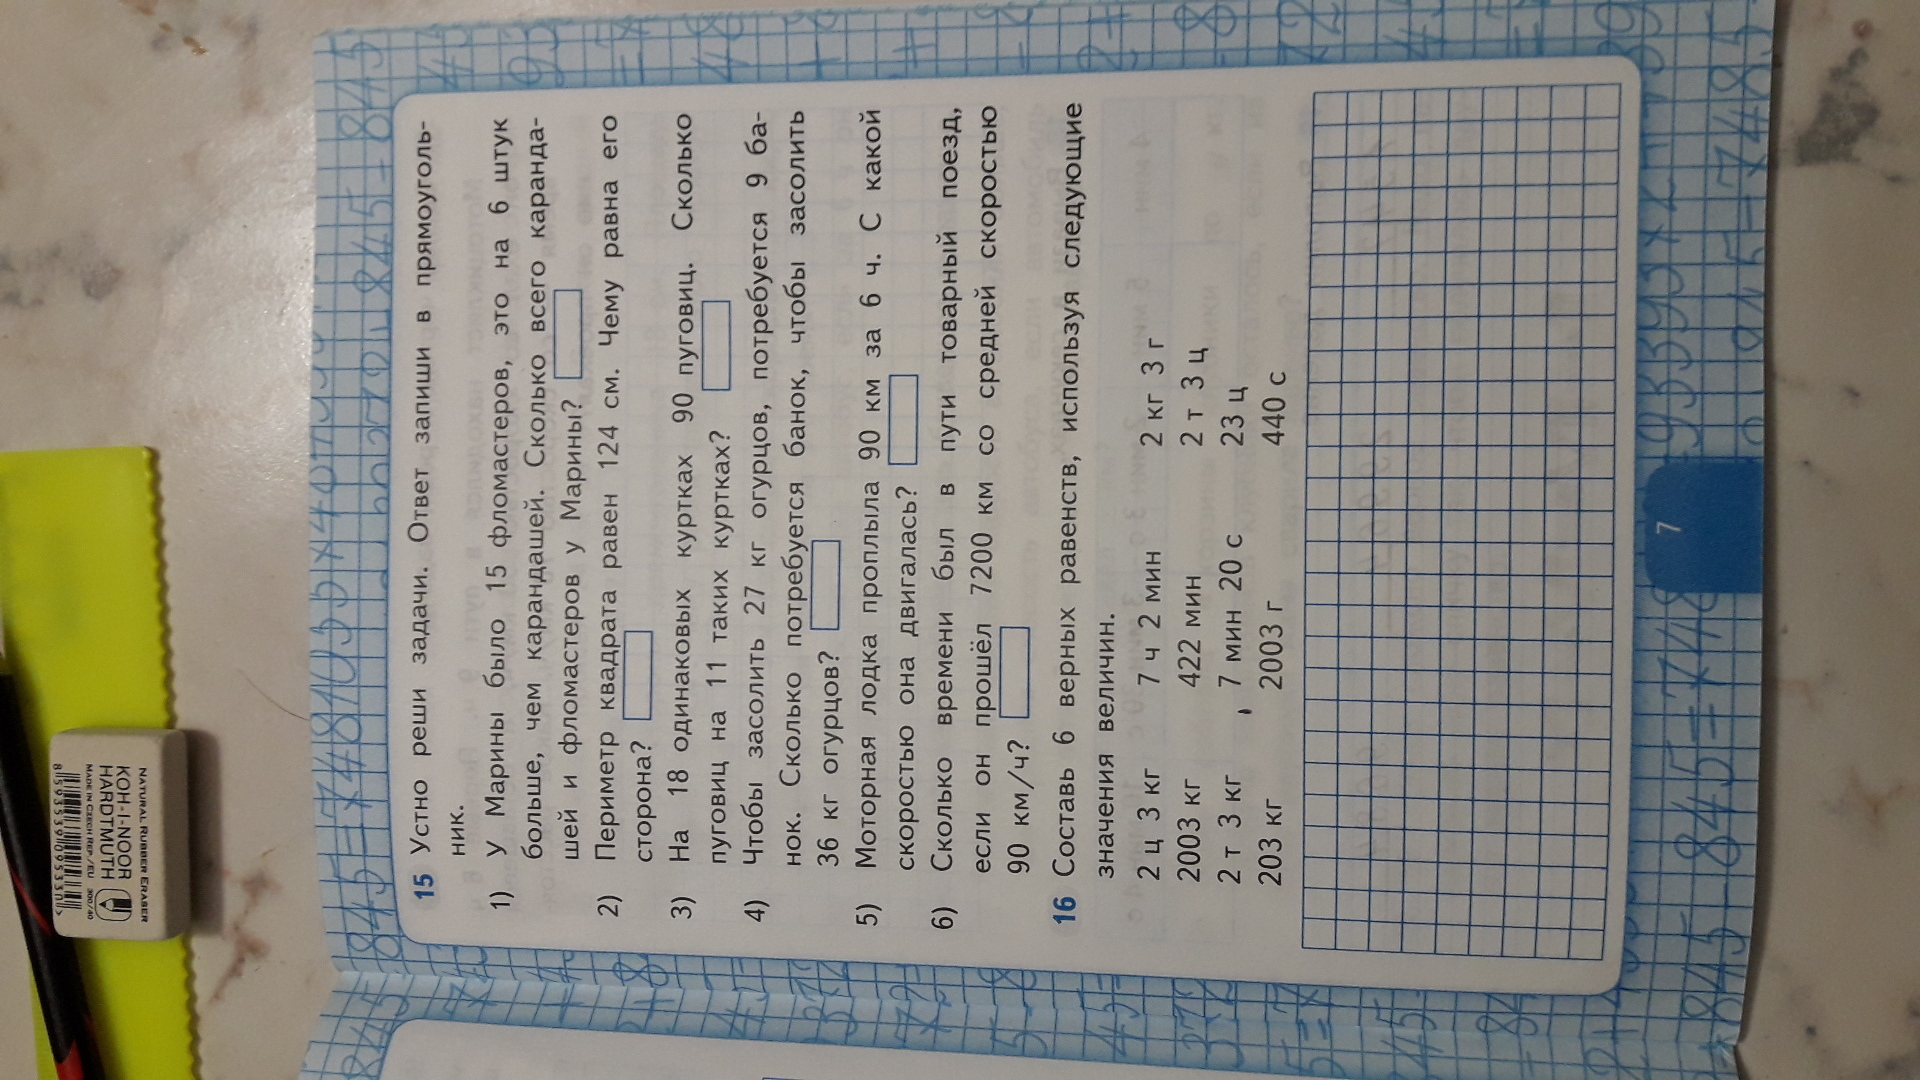 15 Устно реши задачи. Ответ запиши в прямоуголь-
ник.
1) У Марины было 15 фломастеров, это на 6 штук
больше, чем карандашей. Сколько всего каранда-
шей и фломастеров у Марины?
2) Периметр квадрата равен 124 см. Чему равна его
сторона?
3) На 18 одинаковых куртках 90 пуговиц. Сколько
пуговиц на 11 таких куртках?
4) Чтобы засолить 27 кг огурцов, потребуется 9 ба-
нок. Сколько потребуется банок, чтобы засолить
36 кг огурцов?
5) Моторная лодка проплыла 90 км за 6 ч. С какой
скоростью она двигалась?
6) Сколько времени был в пути товарный поезд,
если он прошёл 7200 км со средней скоростью
90 км/ч?
16 Составь 6 верных равенств, используя следующие
значения величин.
2 ц 3 кг 7 ч 2 мин 2 кг 3 г
2003 кг 422 мин 2 т 3 ц
2 т 3 кг 7 мин 20 с 23 ц
203 кг 2003 г 440 с
7
NATURAL RUBBER ERASER
KOH-I-NOOR
HARDTMUTH
MADE IN CZECH REP./EU 300/40